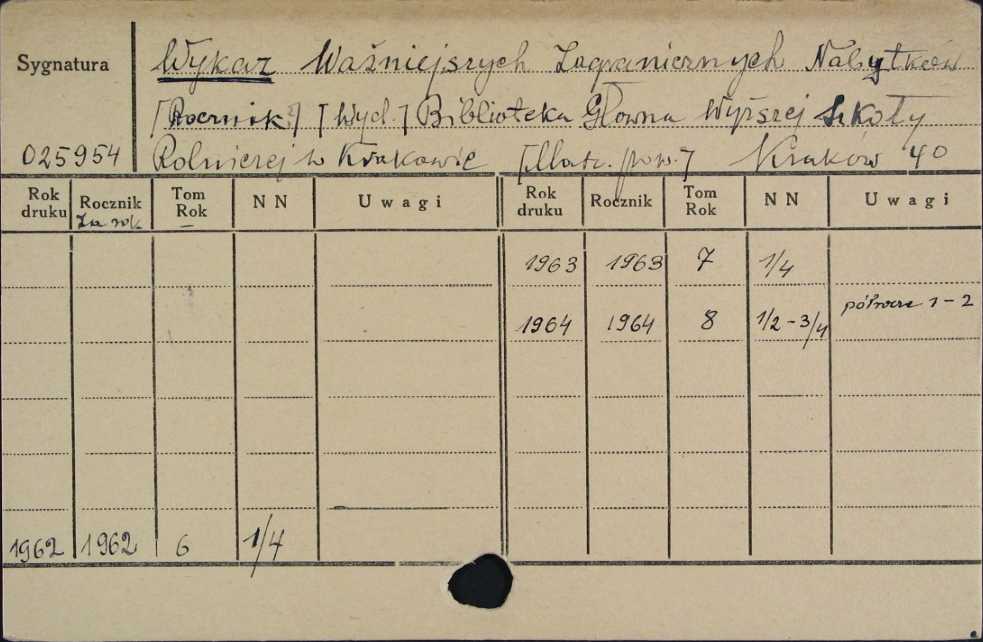 Sygnatura
Wykaz Ważniejszych Zagranicznych Nabytków
[Rocznik] [Wyd.] Biblioteka Głowna Wyższej Szkoły
025954 Rolniczej w Krakowie [Mat. pow.] Kraków 4o
Rok druku Rocznik Za rok Tom Rok NN Uwagi Rok druku Rocznik Tom Rok NN Uwagi
1963 1963 7 1/4
1964 1964 8 1/2-3/4 półrocze 1-2
1962 1962 6 1/4